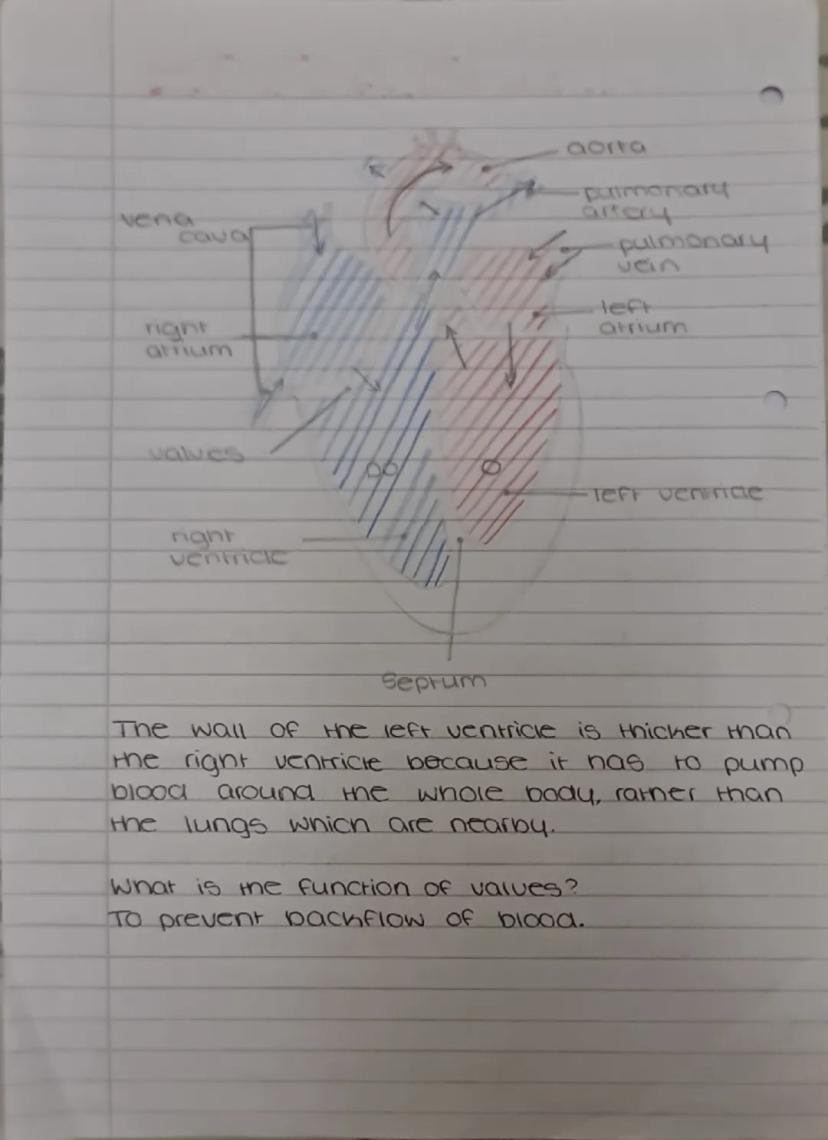 aorta
pulmonary
artery
vena
cava
pulmonary
vein
left
atrium
right
atrium
valves
left ventricle
right
ventricle
septum
The wall of the left ventricle is thicker than
the right ventricle because it has to pump
blood around the whole body, rather than
the lungs which are nearby.
What is the function of valves?
To prevent backflow of blood.